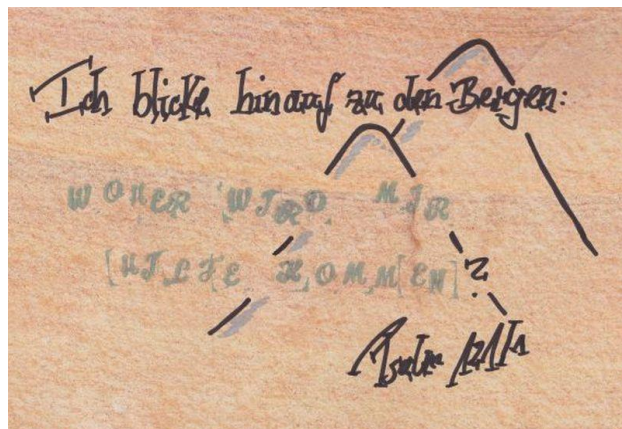 Ich blicke hinauf zu den Bergen:
WOHER WIRD MIR
HILFE KOMMEN?
Psalm 121,1